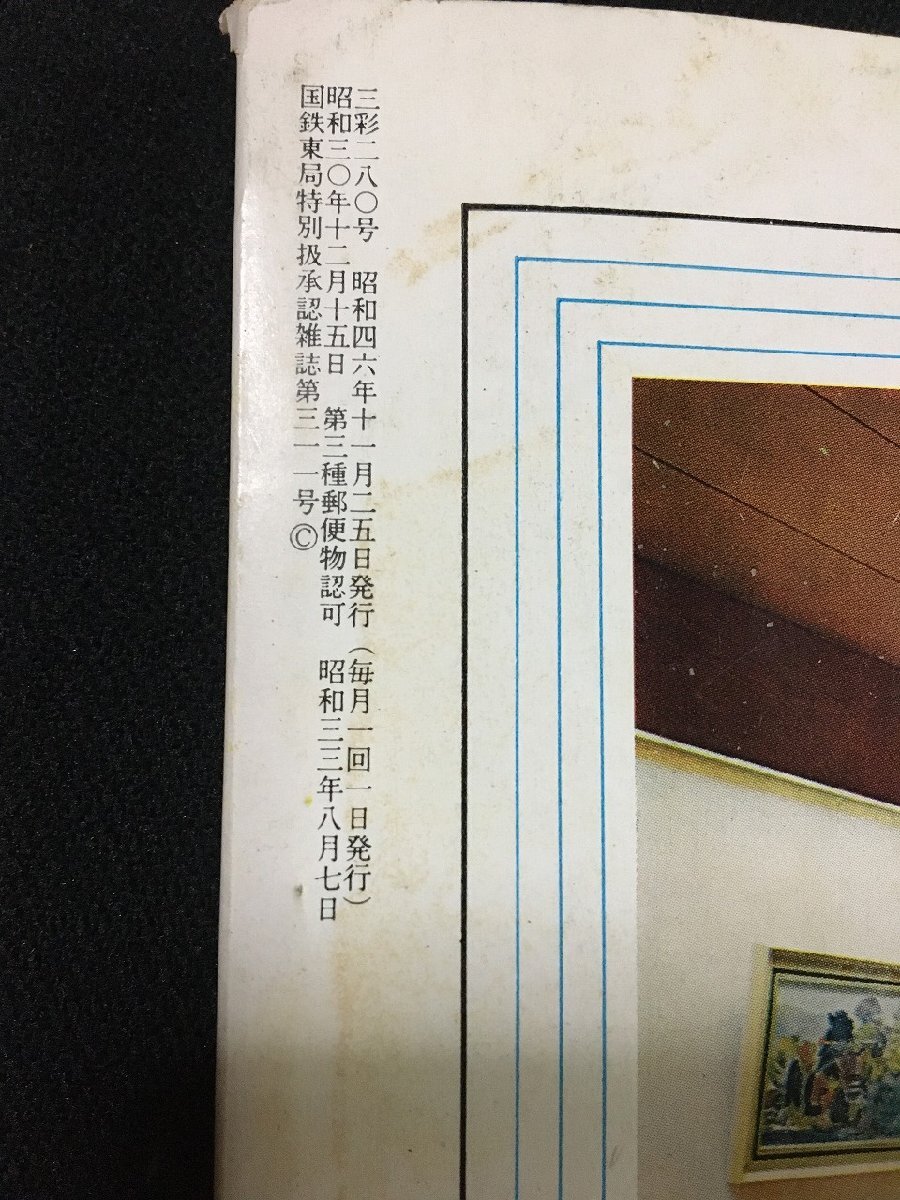 三彩二八〇号　昭和四六年十一月二五日発行（毎月一回一日発行）
昭和三〇年十二月十五日　第三種郵便物認可　昭和三三年八月七日
国鉄東局特別扱承認雑誌第三一一号©